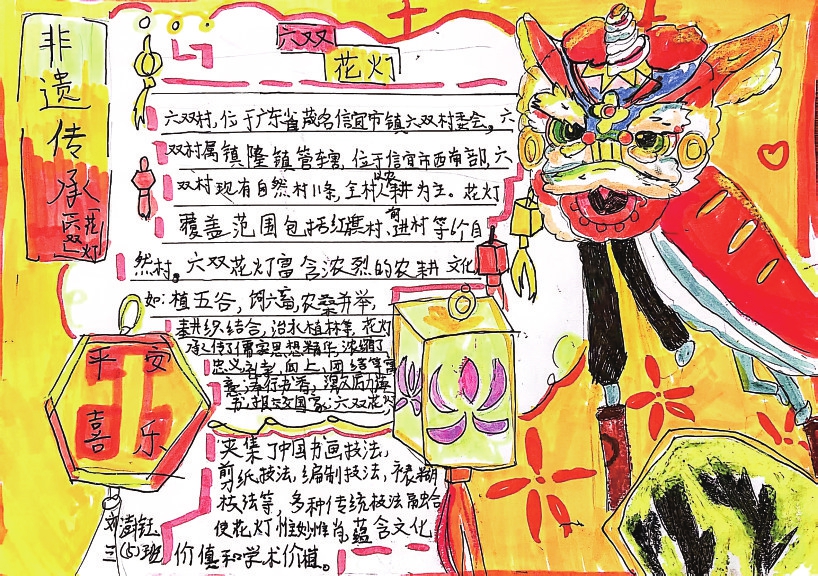 非遗传承
六双
花灯
六双
花灯
六双村,位于广东省茂名信宜市镇六双村委会。六
双村属镇隆镇管辖,位于信宜市西南部,六
双村现有自然村11条,全村以农耕为主。花灯
覆盖范围包括红旗村、前进村等个自
然村。六双花灯富含浓烈的农耕文化
如:植五谷,饲六畜,农桑并举,
耕织结合,治水植林等,花灯
承传了儒家思想精华,浓缩了
忠义礼孝,向上,团结等寓
书,祖国家;六双花灯
夹集了中国书画技法,
剪纸技法,编制技法,裱糊
技法等,多种传统技法融合
使花灯惟妙惟肖,蕴含文化
价值和学术价值。
平安
喜乐
三(5)班